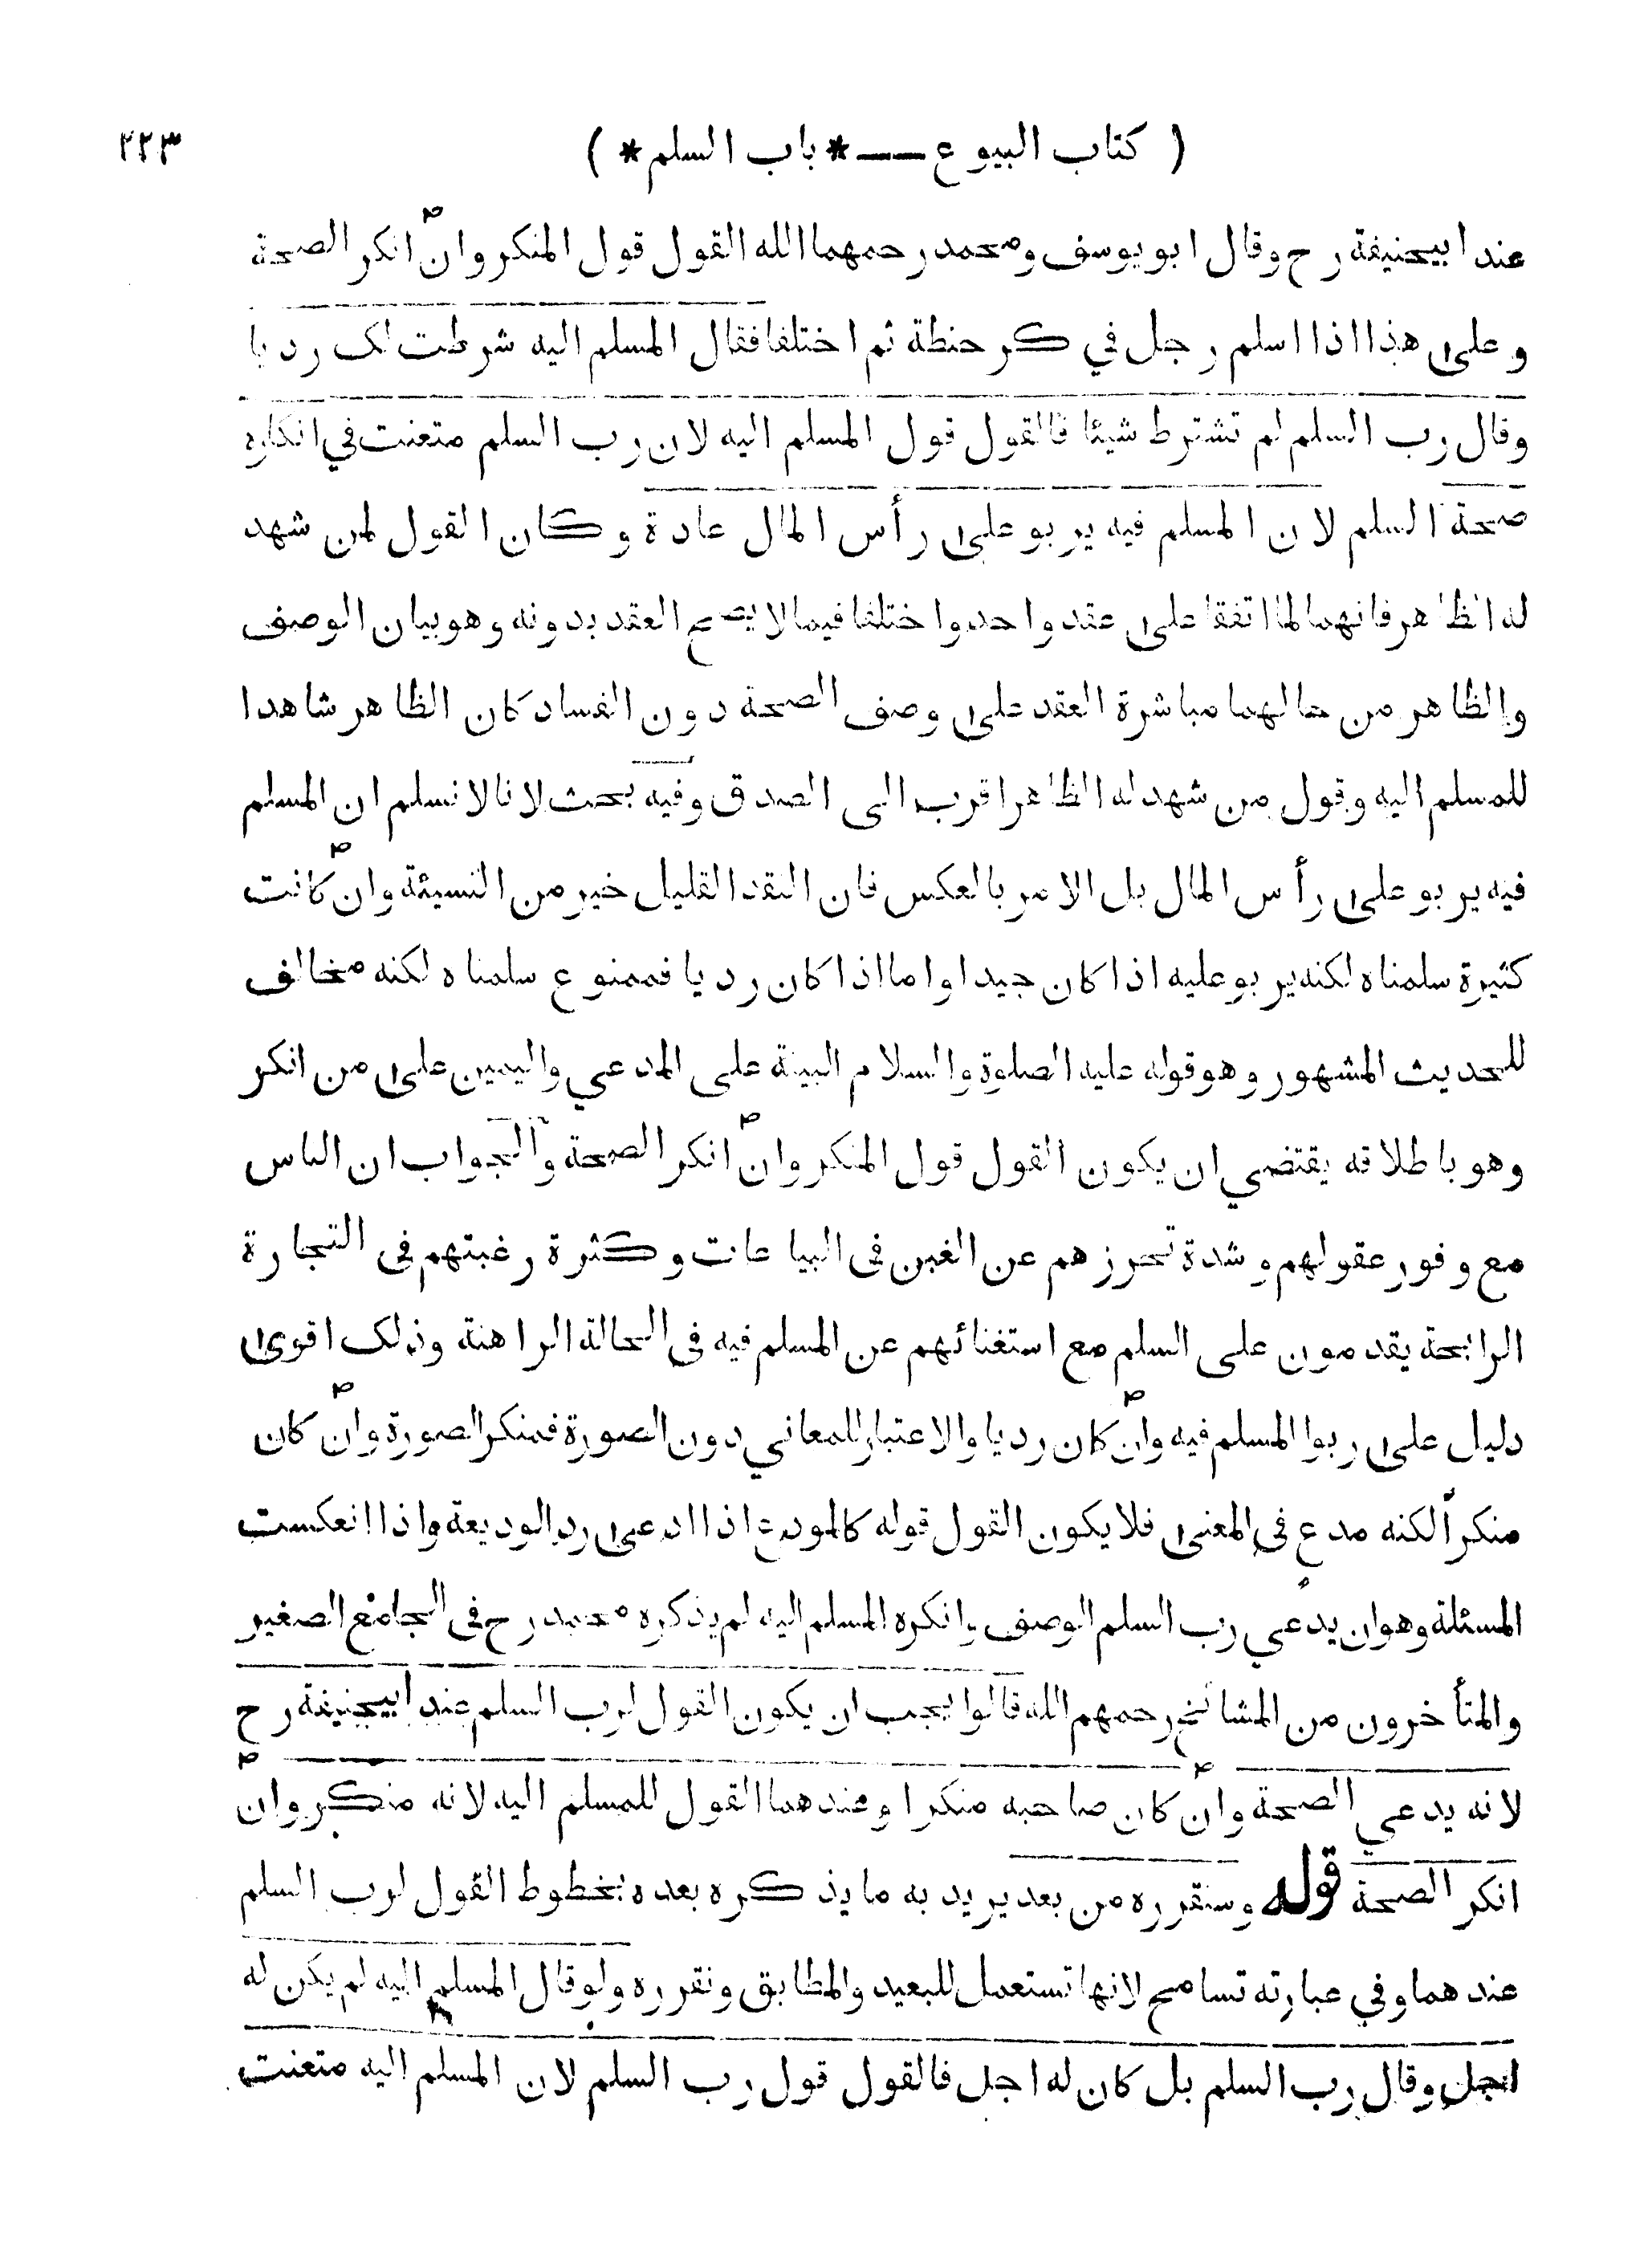 ( كتاب البيوع — * باب السلم * ) ٢٢٣
عند ابيحنيفة رح وقال ابو يوسف ومحمد رحمهما الله القول قول المنكر وان انكر الصحة
وعلى هذا اذا اسلم رجل في كر حنطة ثم اختلفا فقال المسلم اليه شرطت لك رديا
وقال رب السلم لم تشترط شيئا فالقول قول المسلم اليه لان رب السلم متعنت في انكاره
صحة السلم لان المسلم فيه يربو على رأس المال عادة وكان القول لمن شهد
له الظاهر فانهما لما اتفقا على عقد واحد واختلفا فيما لا يصح العقد بدونه وهو بيان الوصف
والظاهر من حالهما مباشرة العقد على وصف الصحة دون الفساد كان الظاهر شاهدا
للمسلم اليه وقول من شهد له الظاهر اقرب الى الصدق وفيه بحث لانا لا نسلم ان المسلم
فيه يربو على رأس المال بل الامر بالعكس فان النقد القليل خير من النسيئة وان كانت
كثيرة سلمناه لكنه يربو عليه اذا كان جيدا واما اذا كان رديا فممنوع سلمناه لكنه مخالف
للحديث المشهور وهو قوله عليه الصلوة والسلام البينة على المدعي واليمين على من انكر
وهو باطلاقه يقتضي ان يكون القول قول المنكر وان انكر الصحة والجواب ان الناس
مع وفور عقولهم وشدة تحرزهم عن الغبن في البياعات وكثرة رغبتهم في التجارة
الرابحة يقدمون على السلم مع استغنائهم عن المسلم فيه في الحالة الراهنة وذلك اقوى
دليل على ربوا المسلم فيه وان كان رديا والاعتبار للمعاني دون الصورة فمنكر الصورة وان كان
منكرا لكنه مدع في المعنى فلا يكون القول قوله كالمودع اذا ادعى رد الوديعة واذا انعكست
المسئلة وهو ان يدعي رب السلم الوصف وانكره المسلم اليه لم يذكره محمد رح في الجامع الصغير
والمتأخرون من المشائخ رحمهم الله قالوا يجب ان يكون القول لرب السلم عند ابيحنيفة رح
لانه يدعي الصحة وان كان صاحبه منكرا وعندهما القول للمسلم اليه لانه منكر وان
انكر الصحة قوله وسنقرره من بعد يريد به ما يذكره بعده بخطوط القول لرب السلم
عندهما وفي عبارته تسامح لانها تستعمل للبعيد والمطابق ونقرره ولو قال المسلم اليه لم يكن له
اجل وقال رب السلم بل كان له اجل فالقول قول رب السلم لان المسلم اليه متعنت